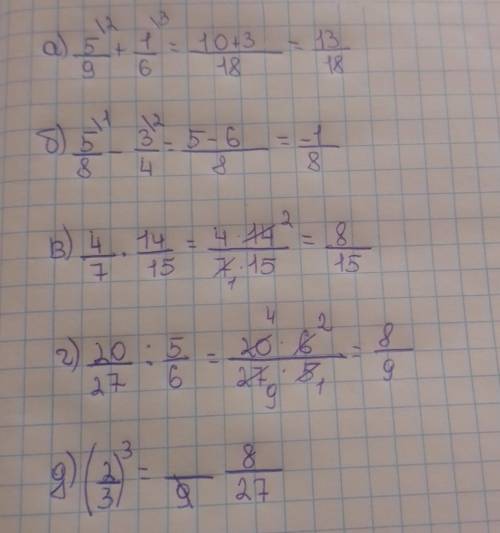 а) 5\2/9 + 1\3/6 = 10+3/18 = 13/18
б) 5\1/8 − 3\2/4 = 5−6/8 = −1/8
в) 4/7 · 14/15 = 4·14 2/7 1·15 = 8/15
г) 20/27 : 5/6 = 20 4·6 2/27 9·5 1 = 8/9
д) (2/3)³ = /9 8/27